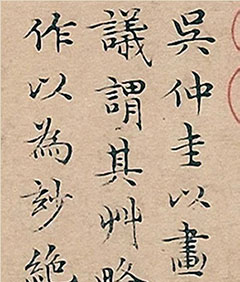 吳仲圭以畫
議謂其艸略
作以為妙絶